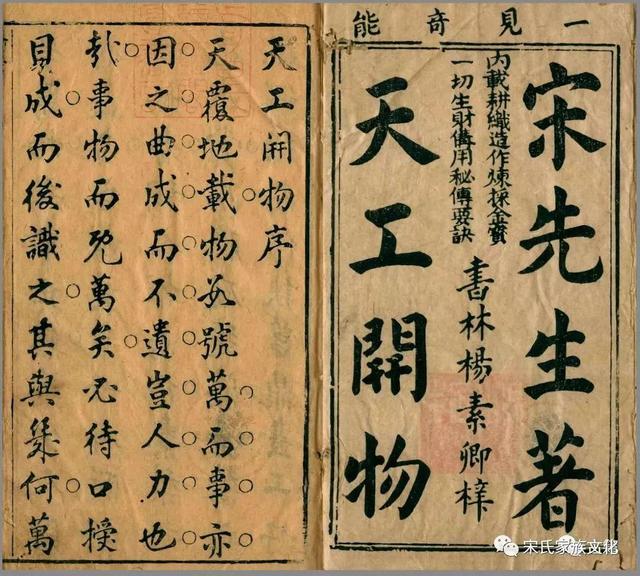 一見奇能
宋先生著
內載耕織造作煉採金寶
一切生財備用秘傳要訣
書林楊素卿梓
天工開物
天工開物序
天覆地載物數號萬而事亦
因之曲成而不遺豈人力也
哉事物而既萬矣必待口授
目成而後識之其與幾何萬
宋氏家族文化